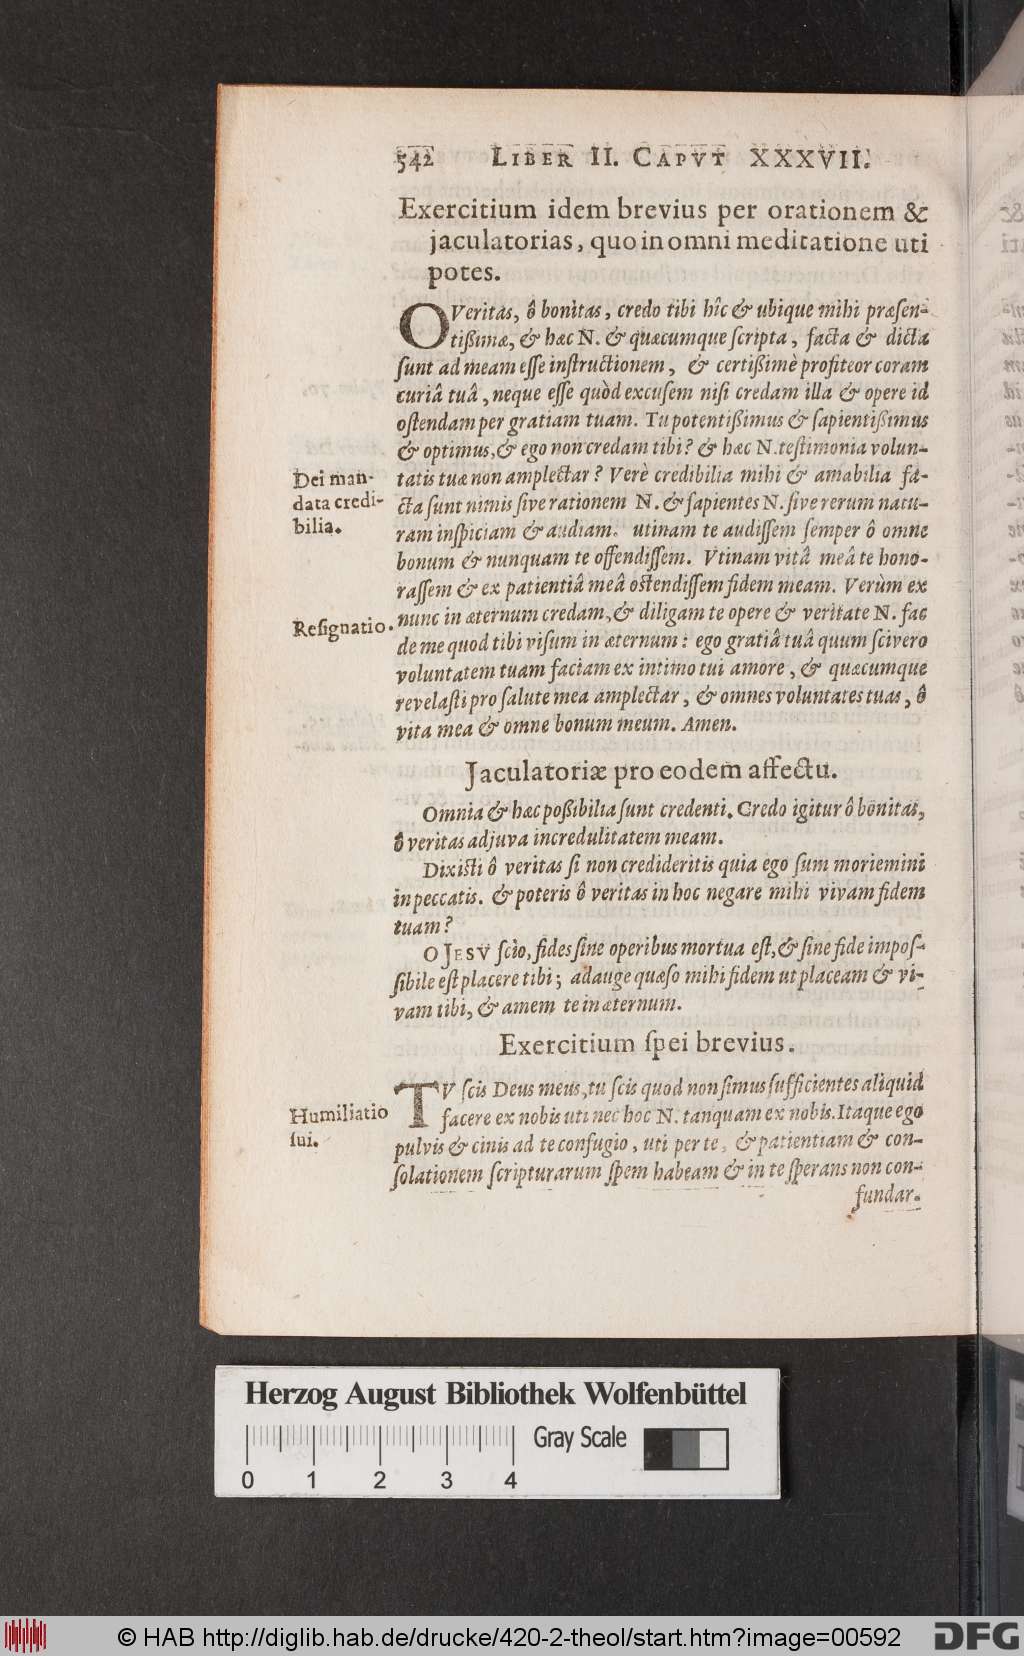 542 LIBER II. CAPVT XXXVII.
Exercitium idem brevius per orationem &
jaculatorias, quo in omni meditatione uti
potes.
O Veritas, ô bonitas, credo tibi hîc & ubique mihi præsen-
tißimæ, & hæc N. & quæcumque scripta, facta & dicta
sunt ad meam esse instructionem, & certißimè profiteor coram
curiâ tuâ, neque esse quòd excusem nisi credam illa & opere id
ostendam per gratiam tuam. Tu potentißimus & sapientißimus
& optimus, & ego non credam tibi? & hæc N. testimonia volun-
Dei man-
data credi-
bilia.
tatis tuæ non amplectar? Verè credibilia mihi & amabilia fa-
cta sunt nimis sive rationem N. & sapientes N. sive rerum natu-
ram inspiciam & audiam. utinam te audissem semper ô omne
bonum & nunquam te offendissem. Vtinam vitâ meâ te hono-
rassem & ex patientiâ meâ ostendissem fidem meam. Verùm ex
Resignatio.
nunc in æternum credam, & diligam te opere & veritate N. fac
de me quod tibi visum in æternum: ego gratiâ tuâ quum scivero
voluntatem tuam faciam ex intimo tui amore, & quæcumque
revelasti pro salute mea amplectar, & omnes voluntates tuas, ô
vita mea & omne bonum meum. Amen.
Jaculatoriæ pro eodem affectu.
Omnia & hæc poßibilia sunt credenti. Credo igitur ô bonitas,
ô veritas adjuva incredulitatem meam.
Dixisti ô veritas si non credideritis quia ego sum moriemini
in peccatis. & poteris ô veritas in hoc negare mihi vivam fidem
tuam?
O JESV scio, fides sine operibus mortua est, & sine fide impos-
sibile est placere tibi; adauge quæso mihi fidem ut placeam & vi-
vam tibi, & amem te in æternum.
Exercitium spei brevius.
TV scis Deus meus, tu scis quod non simus sufficientes aliquid
Humiliatio
sui.
facere ex nobis uti nec hoc N. tanquam ex nobis. Itaque ego
pulvis & cinis ad te confugio, uti per te, & patientiam & con-
solationem scripturarum spem habeam & in te sperans non con-
fundar.
Herzog August Bibliothek Wolfenbüttel
Gray Scale
0 1 2 3 4
© HAB http://diglib.hab.de/drucke/420-2-theol/start.htm?image=00592
DFG